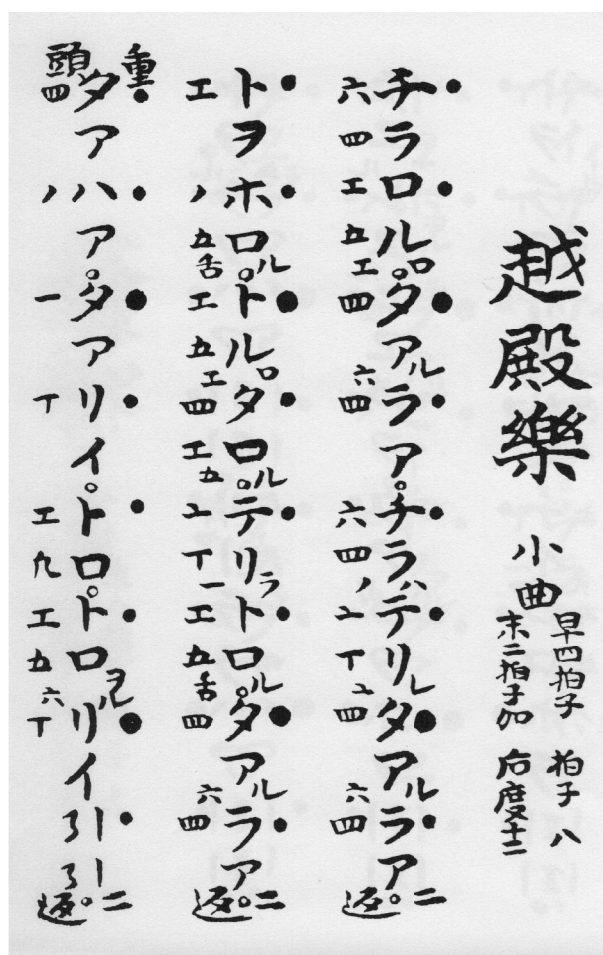 越殿樂
小曲
早四拍子 拍子 八
末二拍子加 后度又十二
チラロルロタアルラアチラハテリレタアルラア
六四エ五エ四六四六四ノ丄丅丄四六四
二返
トヲホロルトルロタロルテリラトロルタアルラア
エノ五舌エ五エ四エ五丄丅一エ五舌四六四
二返
重頭
タアハアタアリイトロトロヲルリイ引引
四ノ一丅エ凡エ五六丅
二返